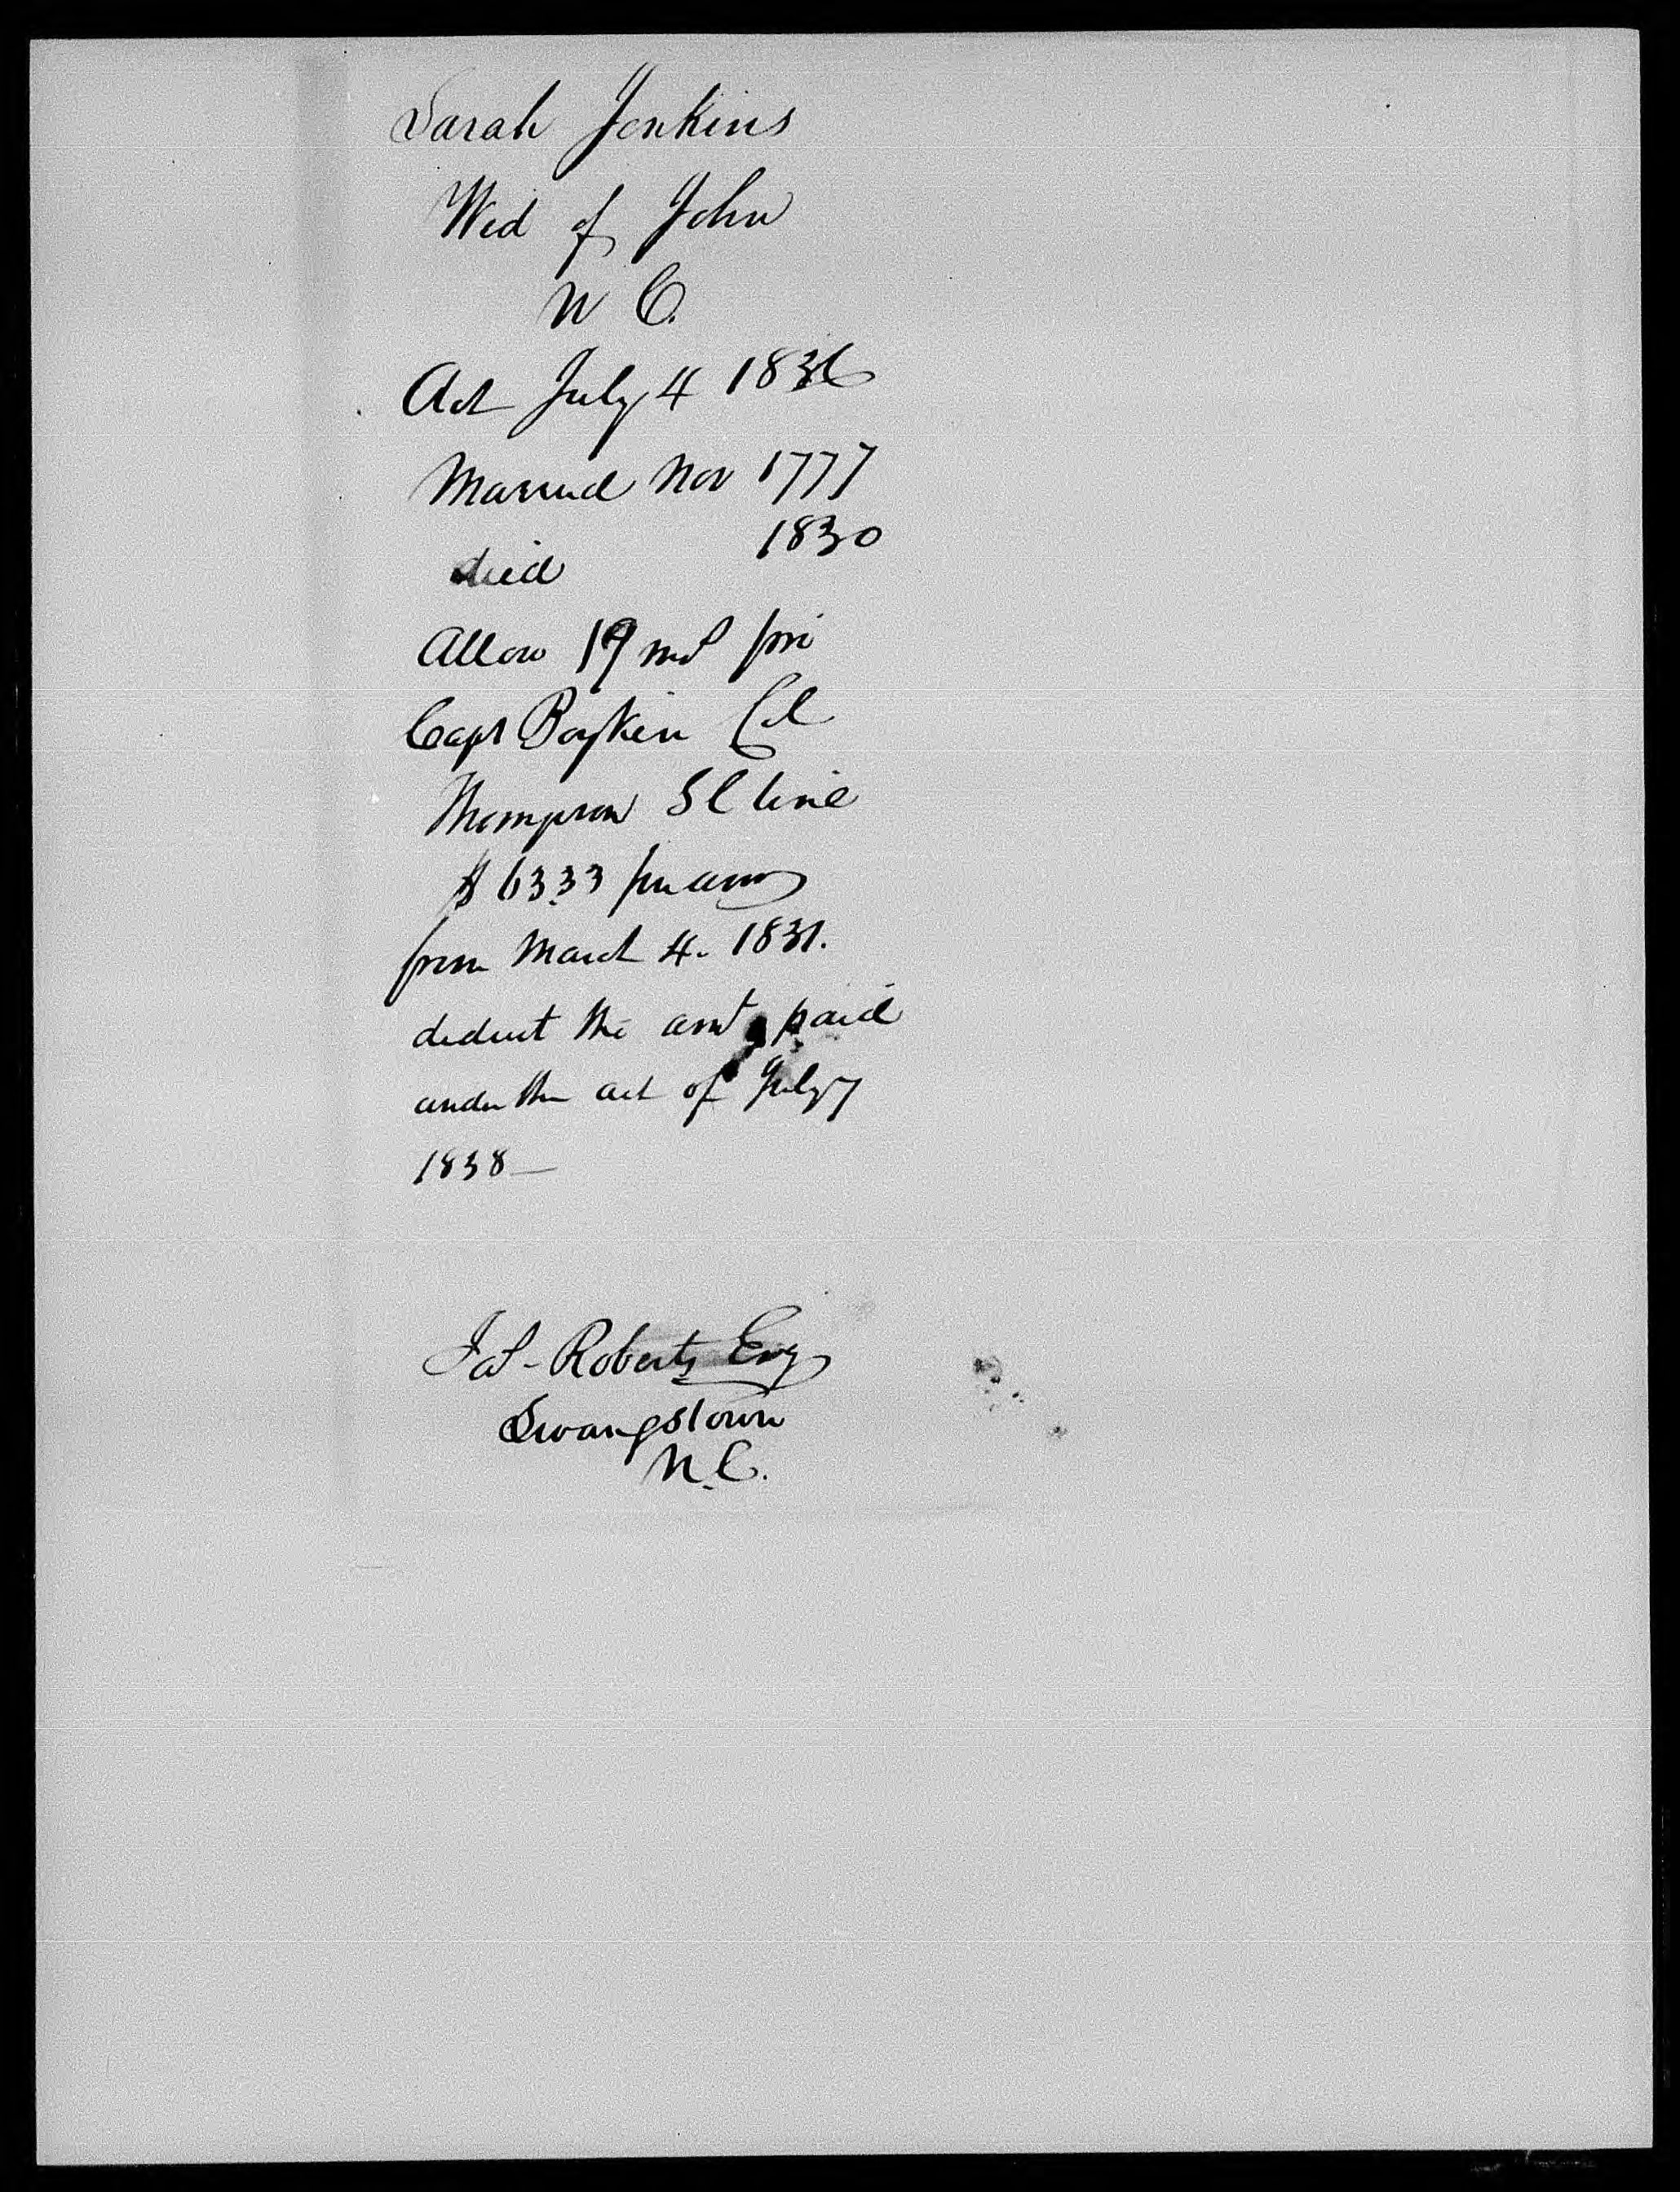 Sarah Jenkins
Wid of John
N C.
Act July 4 1836
Married Nov 1777
died 1830
Allow 19 mos pri
Capt Boykin Col
Thompson S C line
$ 63.33 per ann
from March 4. 1831.
deduct the amt paid
under the act of July 7
1838—
Jas- Roberts Esq
Swangstown
N.C.